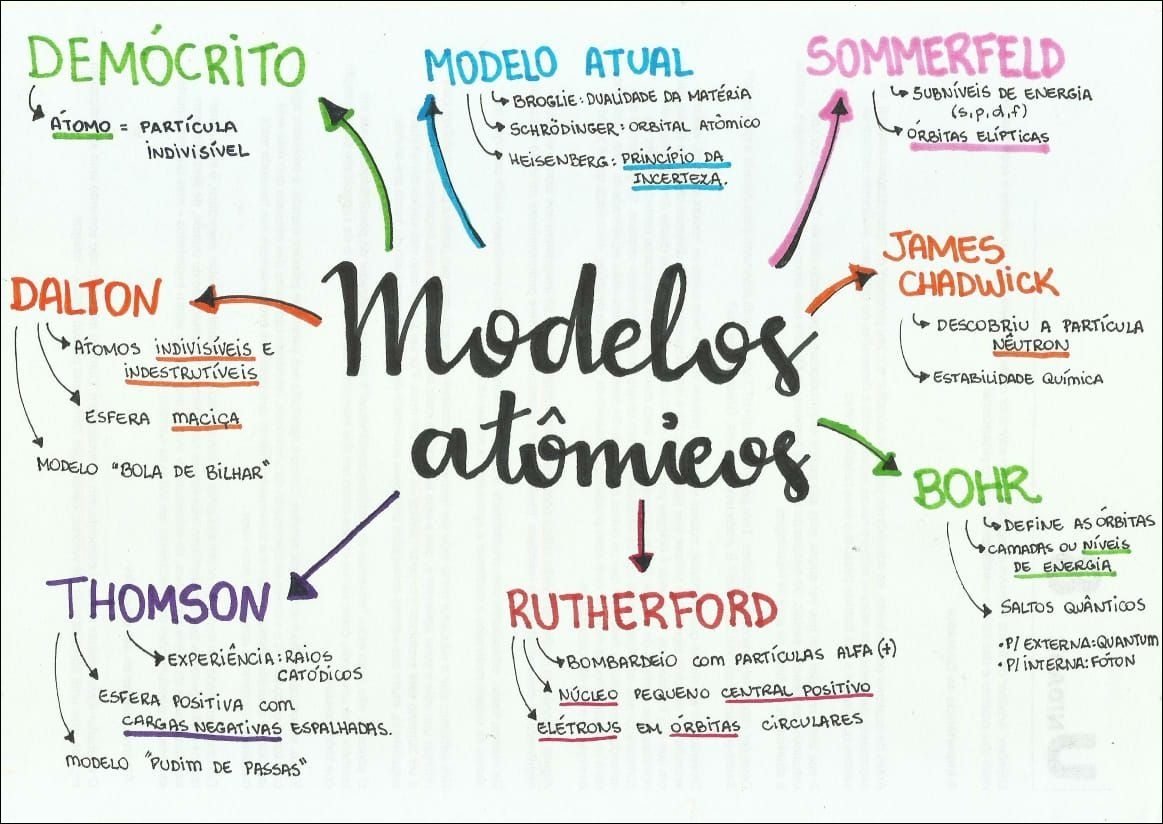 Modelos
atômicos
DEMÓCRITO
ÁTOMO = PARTÍCULA
INDIVISÍVEL
MODELO ATUAL
BROGLIE: DUALIDADE DA MATÉRIA
SCHRÖDINGER: ORBITAL ATÔMICO
HEISENBERG: PRINCÍPIO DA
INCERTEZA.
SOMMERFELD
SUBNÍVEIS DE ENERGIA
(s, p, d, f)
ÓRBITAS ELÍPTICAS
JAMES
CHADWICK
DESCOBRIU A PARTÍCULA
NÊUTRON
ESTABILIDADE QUÍMICA
BOHR
DEFINE AS ÓRBITAS
CAMADAS OU NÍVEIS
DE ENERGIA
SALTOS QUÂNTICOS
• P/ EXTERNA: QUANTUM
• P/ INTERNA: FÓTON
RUTHERFORD
BOMBARDEIO COM PARTÍCULAS ALFA (+)
NÚCLEO PEQUENO CENTRAL POSITIVO
ELÉTRONS EM ÓRBITAS CIRCULARES
THOMSON
EXPERIÊNCIA: RAIOS
CATÓDICOS
ESFERA POSITIVA COM
CARGAS NEGATIVAS ESPALHADAS.
MODELO "PUDIM DE PASSAS"
DALTON
ÁTOMOS INDIVISÍVEIS E
INDESTRUTÍVEIS
ESFERA MACIÇA
MODELO "BOLA DE BILHAR"